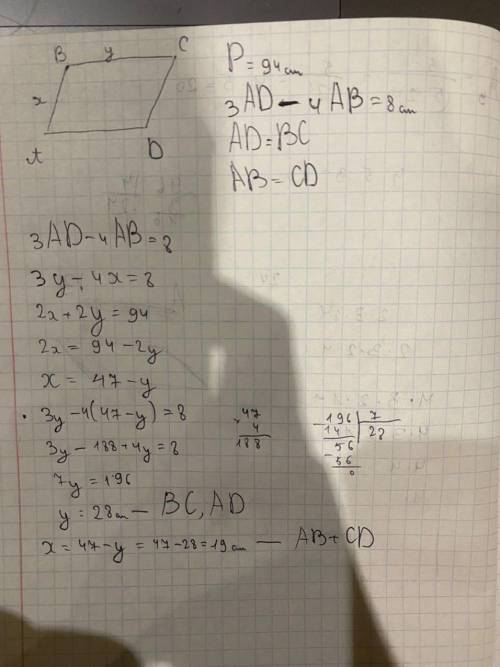 B y C
x
A D
P = 94 cm
3AD - 4AB = 8 cm
AD = BC
AB = CD
3AD - 4AB = 8
3y - 4x = 8
2x + 2y = 94
2x = 94 - 2y
x = 47 - y
3y - 4(47 - y) = 8
3y - 188 + 4y = 8
7y = 196
y = 28 cm — BC, AD
x = 47 - y = 47 - 28 = 19 cm — AB + CD
47
× 4
188
- 196 | 7
14 | 28
56
- 56
0